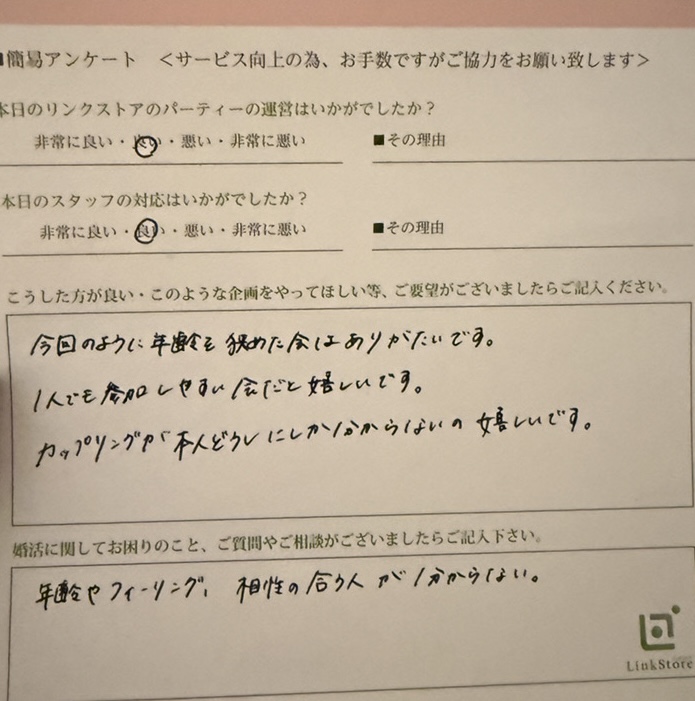 ■簡易アンケート <サービス向上の為、お手数ですがご協力をお願い致します>
本日のリンクストアのパーティーの運営はいかがでしたか？
非常に良い・良い・悪い・非常に悪い ■その理由
本日のスタッフの対応はいかがでしたか？
非常に良い・良い・悪い・非常に悪い ■その理由
こうした方が良い・このような企画をやってほしい等、ご要望がございましたらご記入ください。
今回のように年齢を狭めた会はありがたいです。
1人でも参加しやすい会だと嬉しいです。
カップリングが本人どうしにしか分からないの嬉しいです。
婚活に関してお困りのこと、ご質問やご相談がございましたらご記入下さい。
年齢やフィーリング、相性の合う人が分からない。
LinkStore